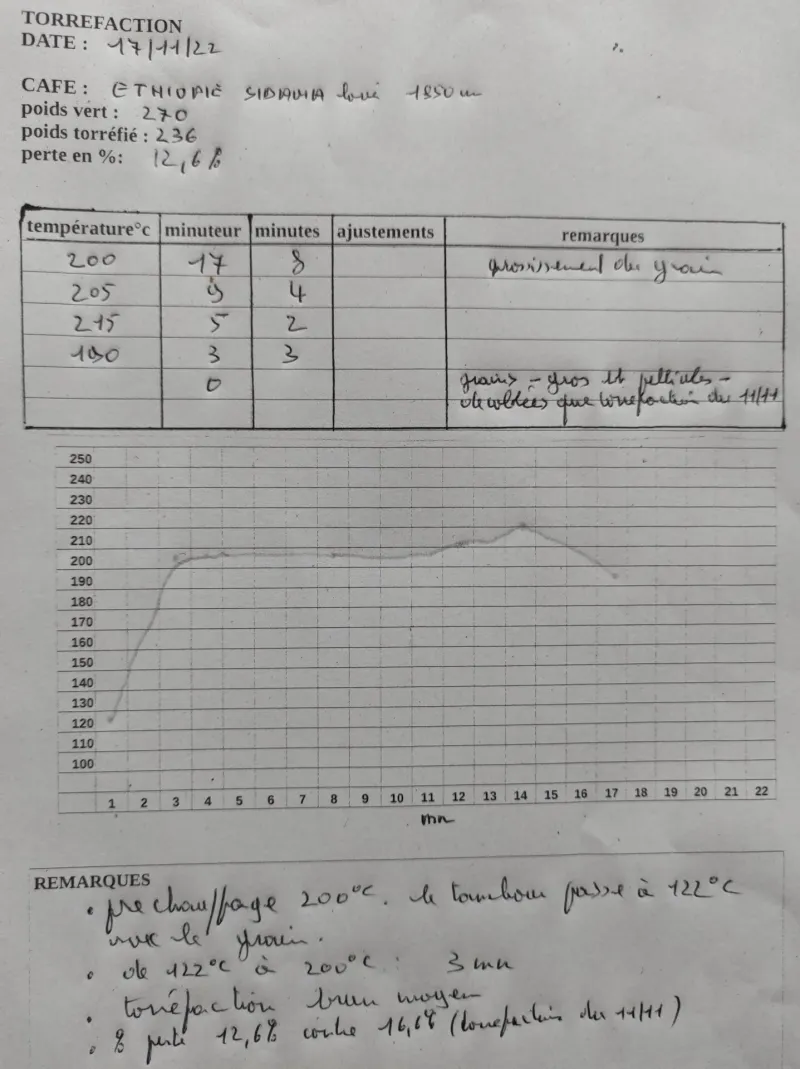 TORREFACTION
DATE : 17/11/22
CAFE : ETHIOPIE SIDAMA lavé 1850 m
poids vert : 270
poids torréfié : 236
perte en %: 12,6%
température°c minuteur minutes ajustements remarques
200 17 8 grossissement du grain
205 9 4
215 5 2
190 3 3
0 grains - gros et pellicules -
que torréfaction du 11/11
250
240
230
220
210
200
190
180
170
160
150
140
130
120
110
100
1 2 3 4 5 6 7 8 9 10 11 12 13 14 15 16 17 18 19 20 21 22
mn
REMARQUES
• préchauffage 200°C. le tambour passe à 122°C
avec le grain.
• de 122°C à 200°C : 3 mn
• torréfaction brun moyen
• % perte 12,6% contre 16,6% (torréfaction du 11/11)